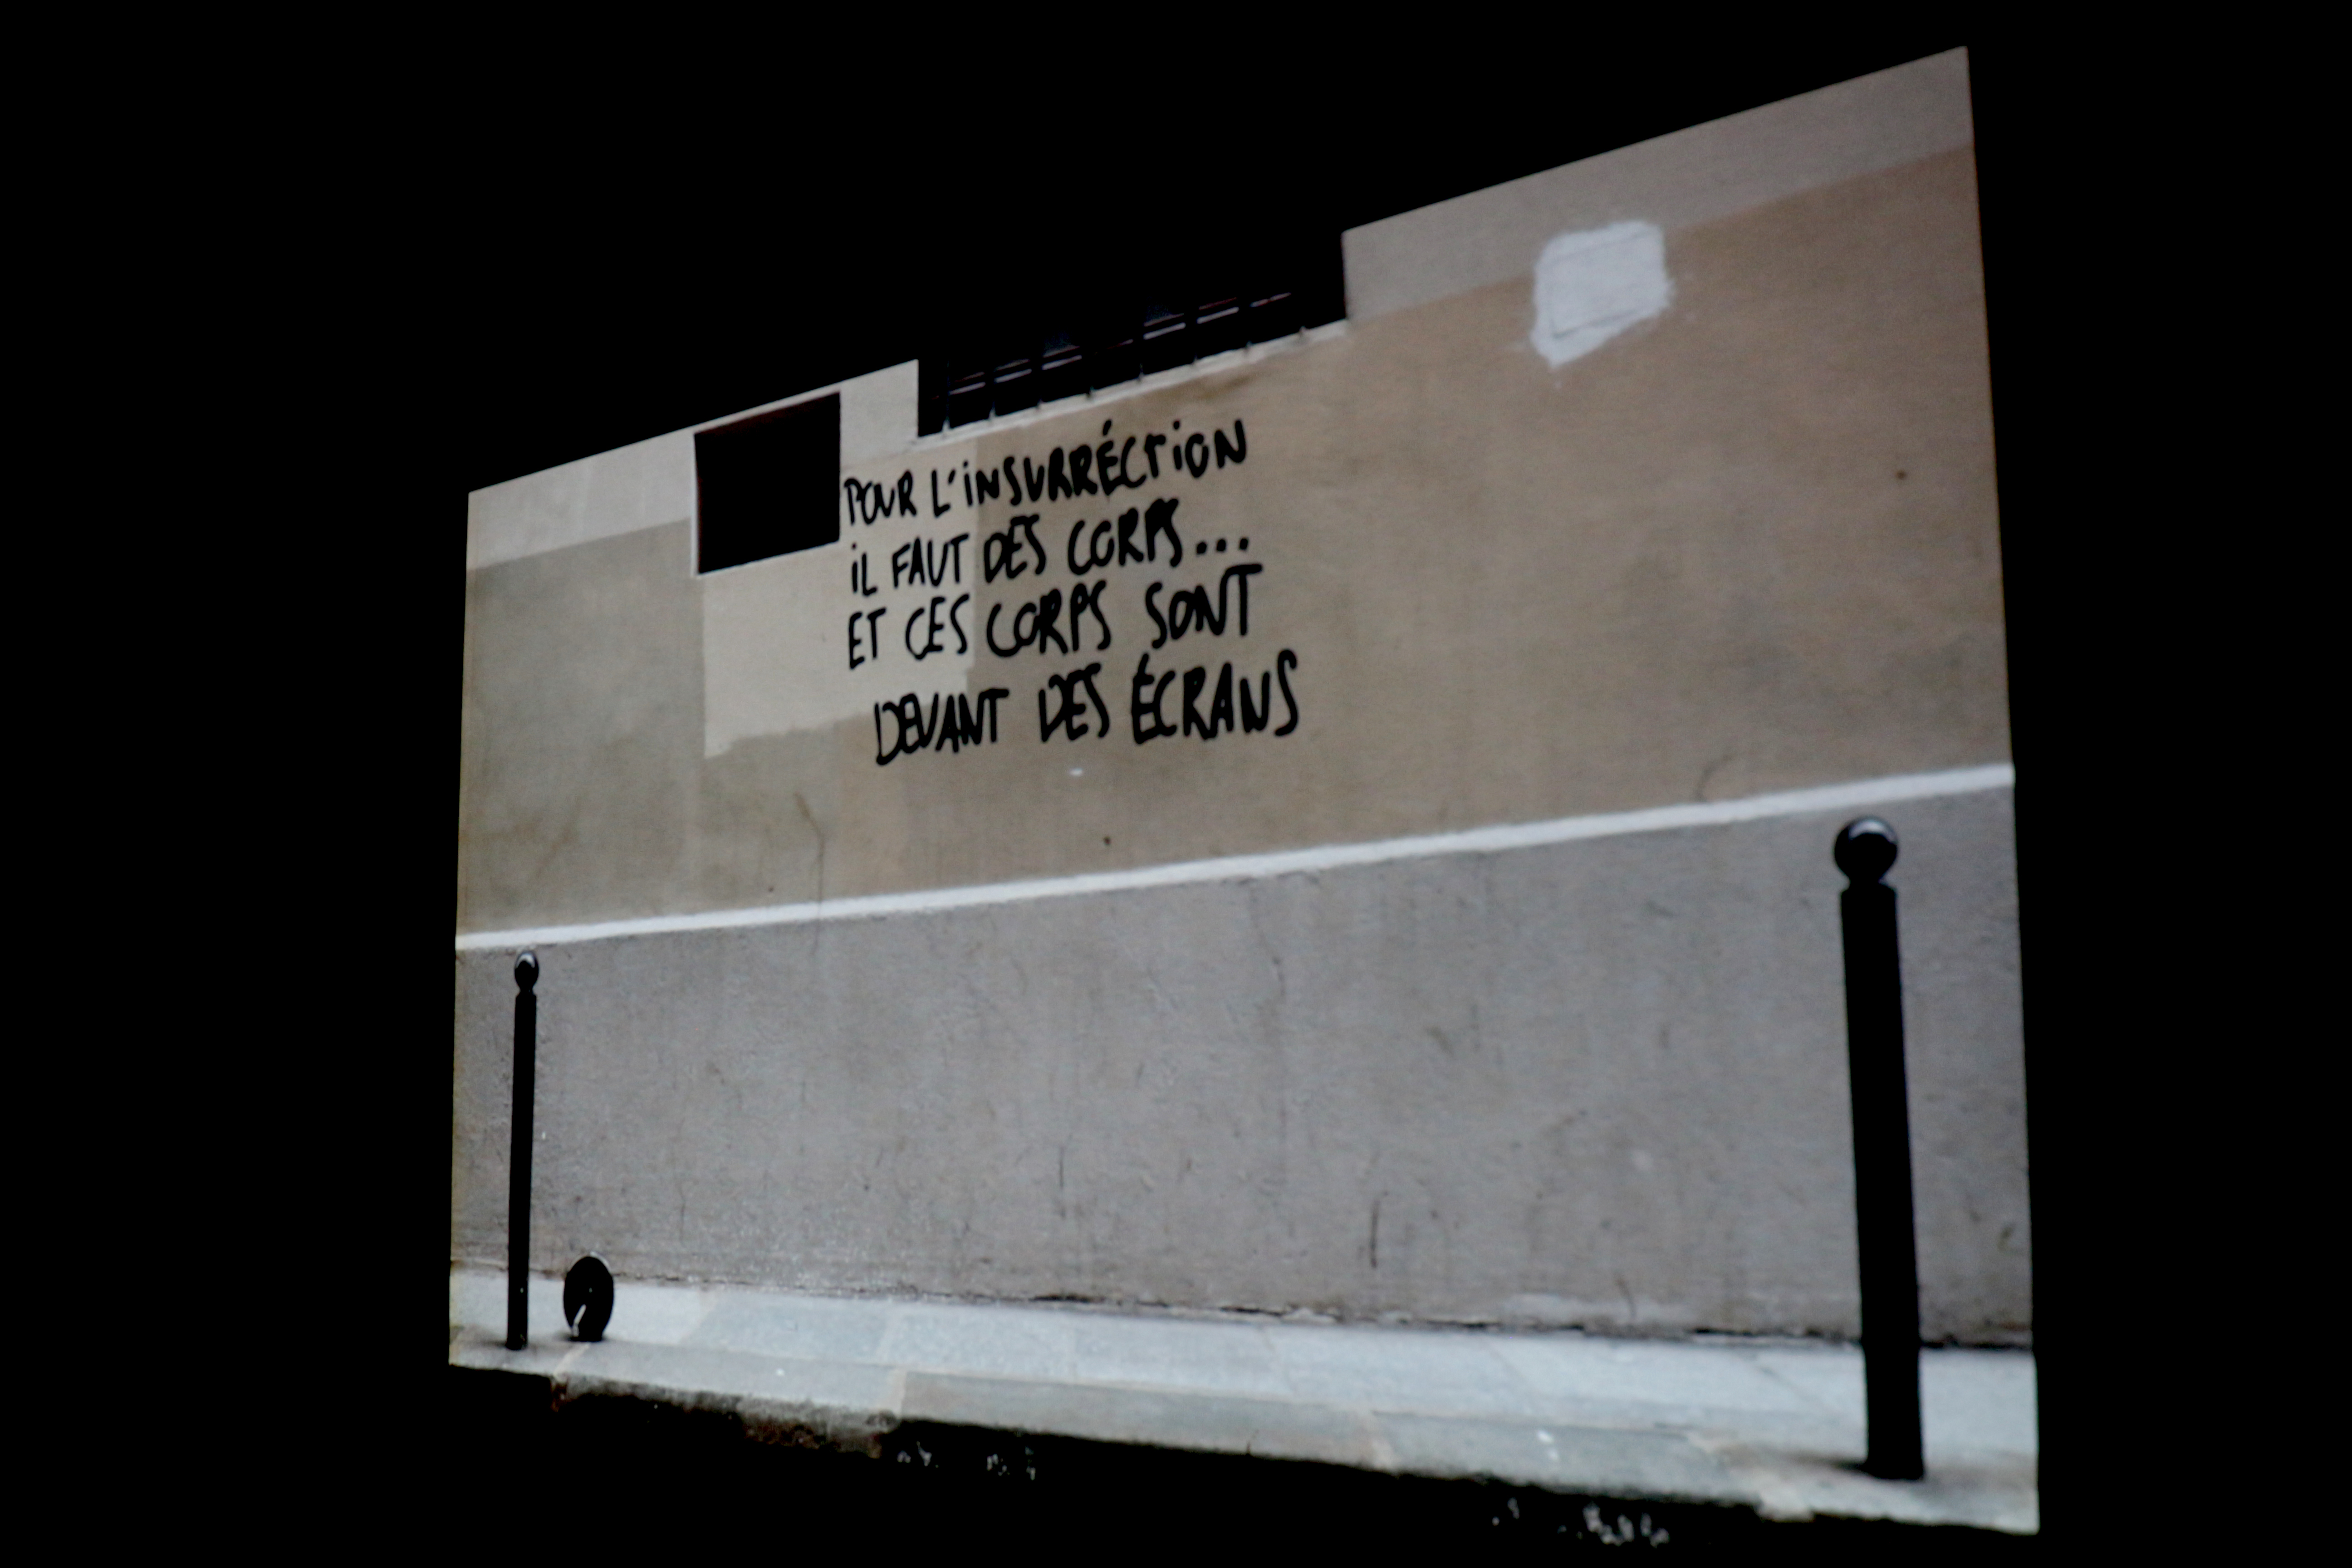 POUR L'iNSURRÉCTiON
iL FAUT DES CORPS...
ET CES CORPS SONT
DEVANT DES ÉCRANS